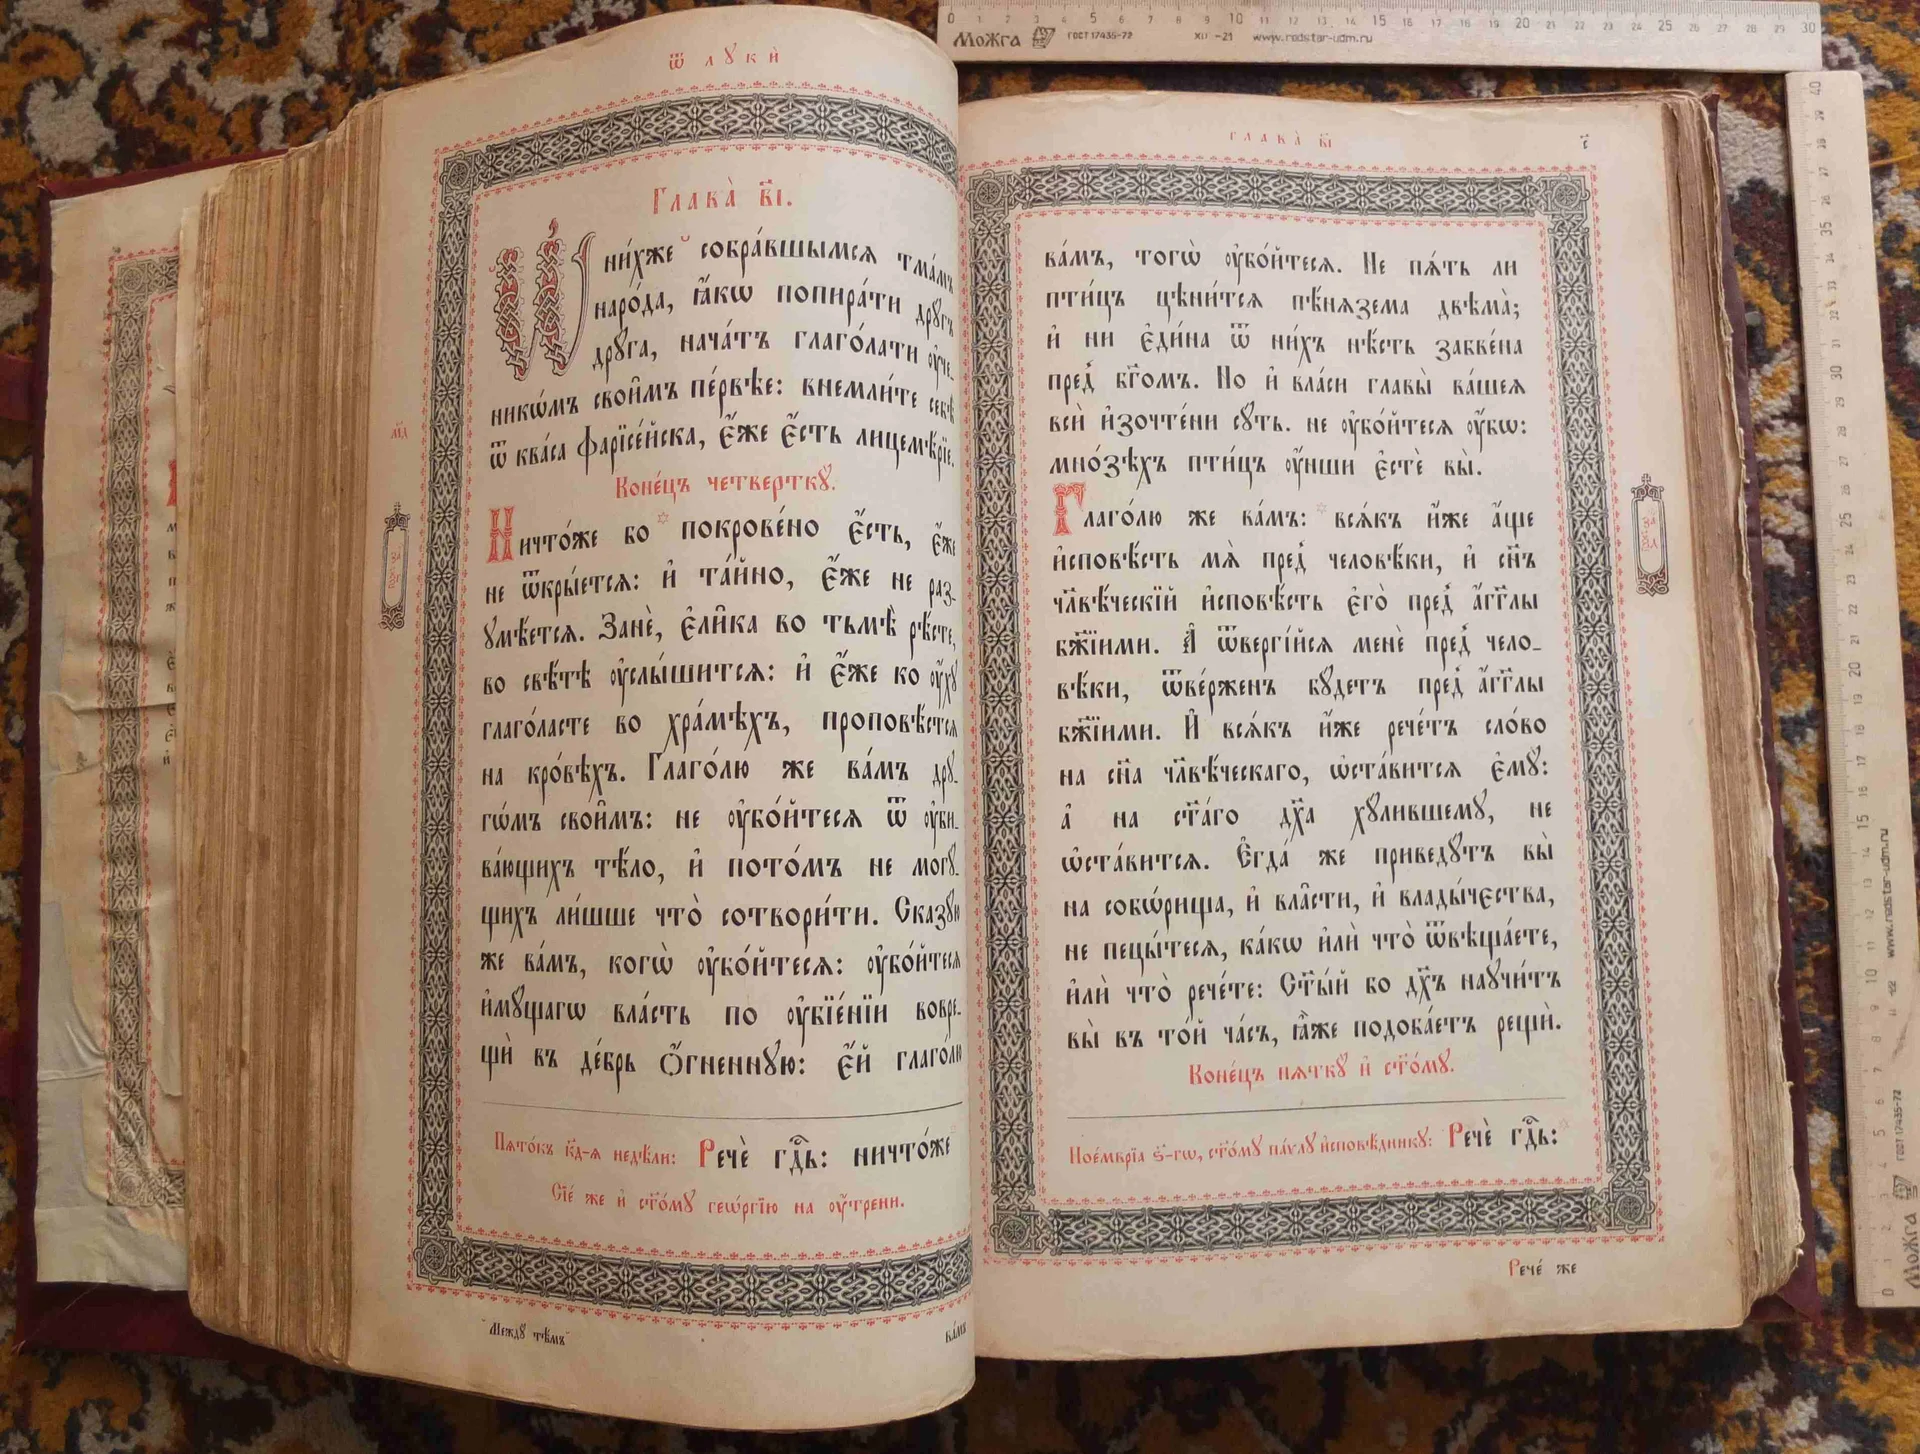 ѿ лꙋкѝ
Глава̀ в҃і.
Ѡ҆ ни́хже собра́вшымсѧ тма́мъ
наро́да, ꙗ҆́кѡ попира́ти дрꙋ́гъ
дрꙋ́га, нача́тъ глаго́лати ᲂу҆че-
никѡ́мъ свои̑мъ пе́рвѣе: внемли́те себѣ̀
ѿ ква́са фарїсе́йска, є҆́же є҆́сть лицемѣ́рїе.
Коне́цъ четверткꙋ̀.
Ничто́же бо покрове́но є҆́сть, є҆́же
не ѿкры́етсѧ: и҆ та́йно, є҆́же не раз-
ꙋмѣ́етсѧ. Занѐ, є҆ли̑ка во тьмѣ̀ рѣ́сте,
во свѣ́тѣ ᲂу҆слы́шитсѧ: и҆ є҆́же ко ᲂу҆́хꙋ
глаго́ласте во хра́мѣхъ, проповѣ́стсѧ
на кро́вѣхъ. Глаго́лю же ва́мъ дрꙋ-
гѡ́мъ свои̑мъ: не ᲂу҆бо́йтесѧ ѿ ᲂу҆би-
ва́ющихъ тѣ́ло, и҆ пото́мъ не могꙋ́-
щихъ ли́шше что̀ сотвори́ти. Сказꙋ́ю
же ва́мъ, когѡ̀ ᲂу҆бо́йтесѧ: ᲂу҆бо́йтесѧ
и҆мꙋ́щагѡ вла́сть по ᲂу҆бїе́нїи вовре-
щѝ въ де́брь ѻ҆́гненнꙋю: є҆́й глаго́лю
Пѧто́къ к҃д-ѧ недѣ́ли: Речѐ гдⷭ҇ь: ничто́же
Сїе́ же и҆ ст҃о́мꙋ геѡ́ргїю на ᲂу҆́трени.
Междꙋ̀ тѣ́мъ
ва́мъ
глава̀ в҃і
ва́мъ, тогѡ̀ ᲂу҆бо́йтесѧ. Не пѧ́ть ли
пти́цъ цѣни́тсѧ пѣ́нѧзема двѣма̀;
и҆ ни є҆ди́на ѿ ни́хъ нѣ́сть забве́на
пред̾ бг҃омъ. Но и҆ вла́си главы̀ ва́шеѧ
всѝ и҆зочте́ни сꙋ́ть. не ᲂу҆бо́йтесѧ ᲂу҆̀бѡ:
мно́зѣхъ пти́цъ ᲂу҆́нши є҆стѐ вы̀.
Глаго́лю же ва́мъ: всѧ́къ и҆́же а҆́ще
и҆сповѣ́сть мѧ̀ пред̾ человѣ́ки, и҆ сн҃ъ
чл҃вѣ́ческїй и҆сповѣ́сть є҆го̀ пред̾ а҆́гг҃лы
бж҃їими. А҆ ѿве́ргїйсѧ менѐ пред̾ чело-
вѣ́ки, ѿве́рженъ бꙋ́детъ пред̾ а҆́гг҃лы
бж҃їими. И҆ всѧ́къ и҆́же рече́тъ сло́во
на сн҃а чл҃вѣ́ческаго, ѡ҆ста́витсѧ є҆мꙋ̀:
а҆ на ст҃а́го дх҃а хꙋ́лившемꙋ, не
ѡ҆ста́витсѧ. Є҆гда́ же приведꙋ́тъ вы̀
на собѡ́рища, и҆ вла̑сти, и҆ влады́чєства,
не пецы́тесѧ, ка́кѡ и҆лѝ что̀ ѿвѣща́ете,
и҆лѝ что̀ рече́те: Ст҃ы́й бо дх҃ъ наꙋчи́тъ
вы̀ въ то́й ча́съ, ꙗ҆̀же подоба́етъ рещѝ.
Коне́цъ пѧткꙋ̀ и҆ ст҃о́мꙋ.
Ное́мврїа ѕ҃-гѡ, ст҃о́мꙋ па́ѵлꙋ и҆сповѣ́дникꙋ: Речѐ гдⷭ҇ь:
Рече́ же
МОЖГА ГОСТ 17435-72 XII -21 www.redstar-udm.ru
МОЖГА ГОСТ 17435-72 www.redstar-udm.ru